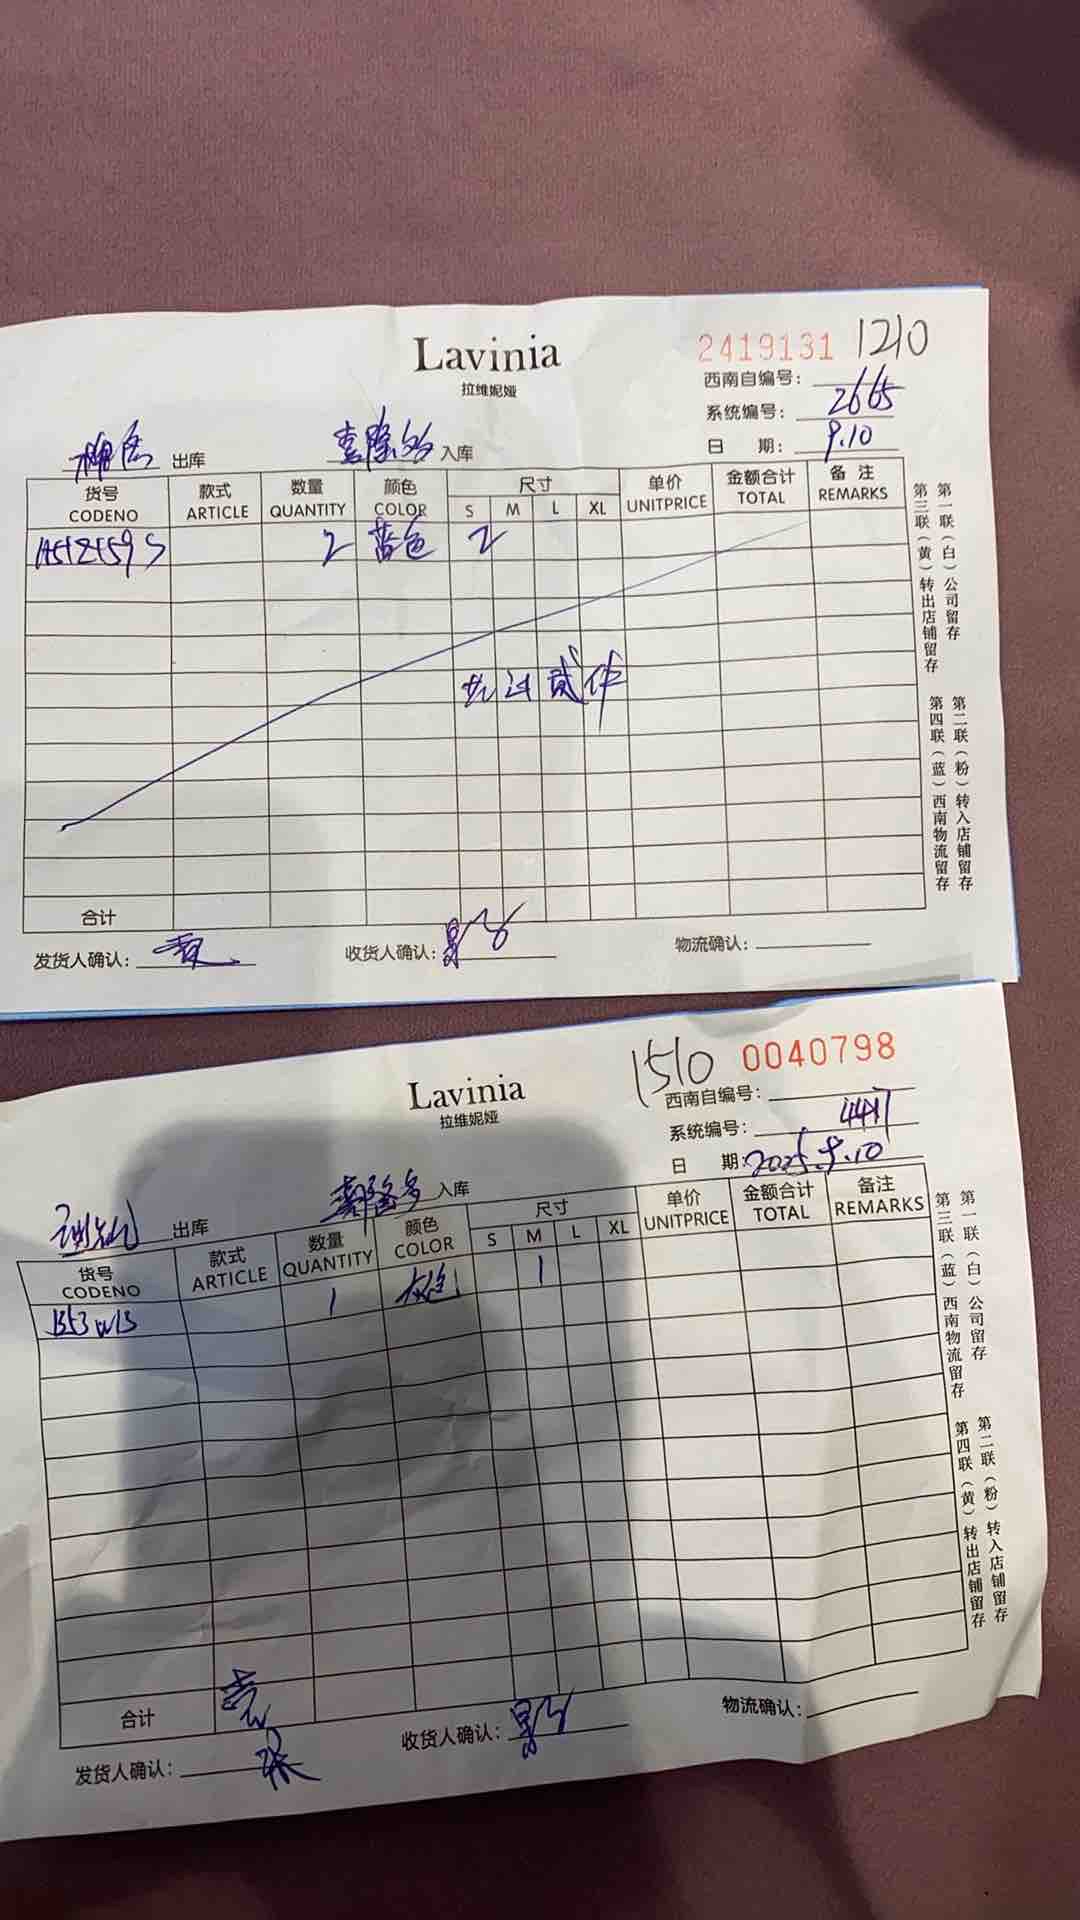 Lavinia
拉维妮娅
2419131 1210
西南自编号：
系统编号： 2665
日 期： 9.10
出库 入库
货号 CODENO 款式 ARTICLE 数量 QUANTITY 颜色 COLOR 尺寸 S M L XL 单价 UNITPRICE 金额合计 TOTAL 备注 REMARKS
2 蓝色 2
共计贰件
合计
发货人确认： 收货人确认： 物流确认：
第一联（白）公司留存
第二联（粉）转入店铺留存
第三联（黄）转出店铺留存
第四联（蓝）西南物流留存
Lavinia
拉维妮娅
1510 0040798
西南自编号：
系统编号： 4417
日 期： 2025.9.10
出库 入库
货号 CODENO 款式 ARTICLE 数量 QUANTITY 颜色 COLOR 尺寸 S M L XL 单价 UNITPRICE 金额合计 TOTAL 备注 REMARKS
1 1
合计
发货人确认： 张 收货人确认： 物流确认：
第一联（白）公司留存
第二联（粉）转入店铺留存
第三联（蓝）西南物流留存
第四联（黄）转出店铺留存